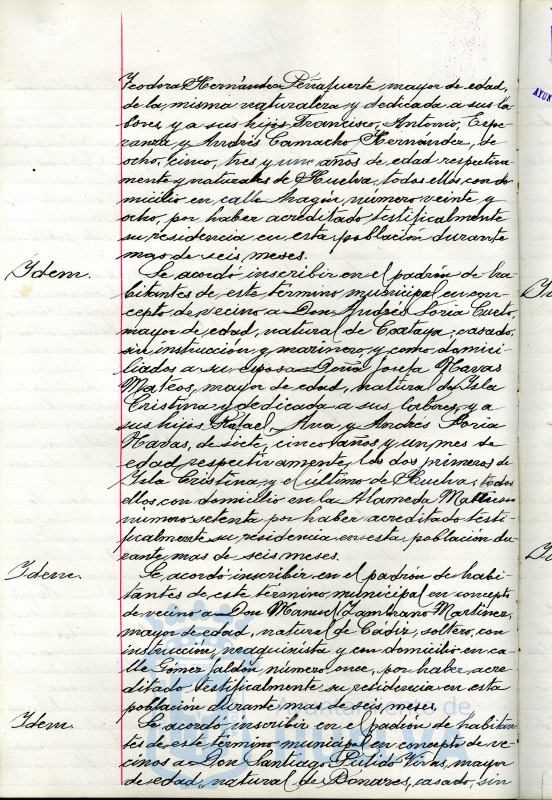 Teodora Hernández Peñafuerte, mayor de edad,
de la misma naturaleza y dedicada a sus la-
bores y a sus hijos Francisco, Antonio, Espe-
ranza y Andrés Camacho Hernández, de
ocho, cinco, tres y un años de edad respectiva
mente y naturales de Huelva, todos ellos, con do
micilio en calle número veinte y
ocho, por haber acreditado testificalmente
su residencia en esta población durante
mas de seis meses.
Idem. Se acordó inscribir en el padrón de ha
bitantes de este término municipal en con-
cepto de vecino a Don Andrés Soria Cueto,
mayor de edad, natural de casado,
sin instrucción y marinero, y como domici-
liados a su esposa Doña Josefa Navas
Mateos, mayor de edad, natural de Isla
Cristina y dedicada a sus labores, y a
sus hijos Rafael, Ana y Andrés Soria
Navas, de siete, cinco años y un mes de
edad respectivamente, los dos primeros de
Isla Cristina y el último de Huelva, todos
ellos, con domicilio en la Alameda
número setenta por haber acreditado testi-
ficalmente su residencia en esta población du-
rante mas de seis meses.
Idem. Se acordó inscribir en el padrón de habi-
tantes de este término municipal en concepto
de vecino a Don Manuel Zambrano Martínez,
mayor de edad, natural de Cádiz, soltero, con
instrucción, maquinista y con domicilio en ca-
lle Gómez Jaldón número once, por haber acre-
ditado testificalmente su residencia en esta
población durante mas de seis meses.
Idem. Se acordó inscribir en el padrón de habitan
tes de este término municipal en concepto de ve-
cinos a Don Santiago Pulido Vivas, mayor
de edad, natural de Bonares, casado, sin